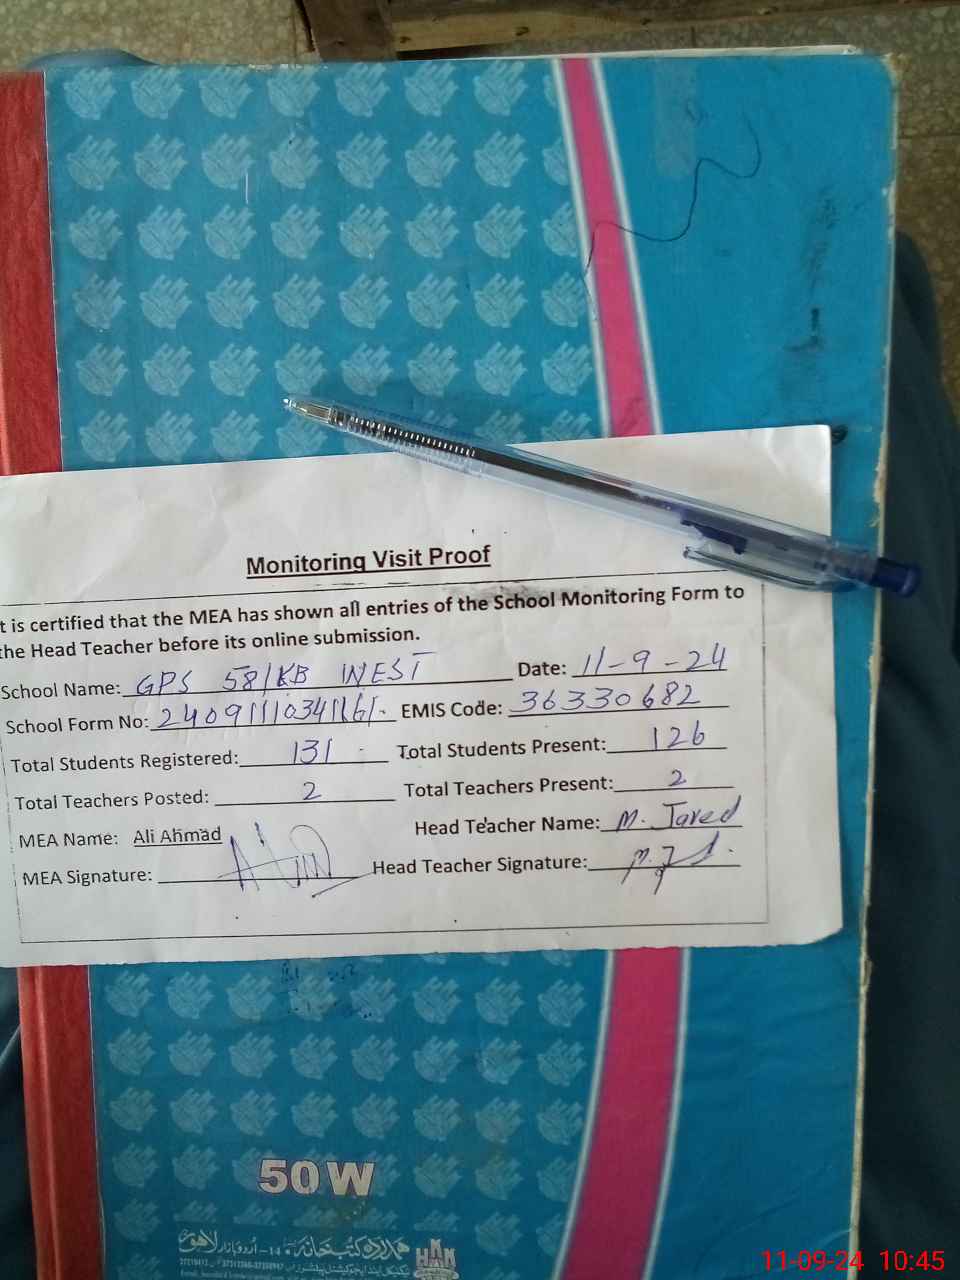 Monitoring Visit Proof
t is certified that the MEA has shown all entries of the School Monitoring Form to
the Head Teacher before its online submission.
School Name: GPS 58/KB WEST Date: 11-9-24
School Form No: EMIS Code: 36330682
Total Students Registered: 131 Total Students Present: 126
Total Teachers Posted: 2 Total Teachers Present: 2
MEA Name: Ali Ahmad Head Teacher Name: M. Javed
MEA Signature: Head Teacher Signature:
50 W
ہمدرد کتب خانہ 14-اردو بازار لاہور
HKK
11-09-24 10:45